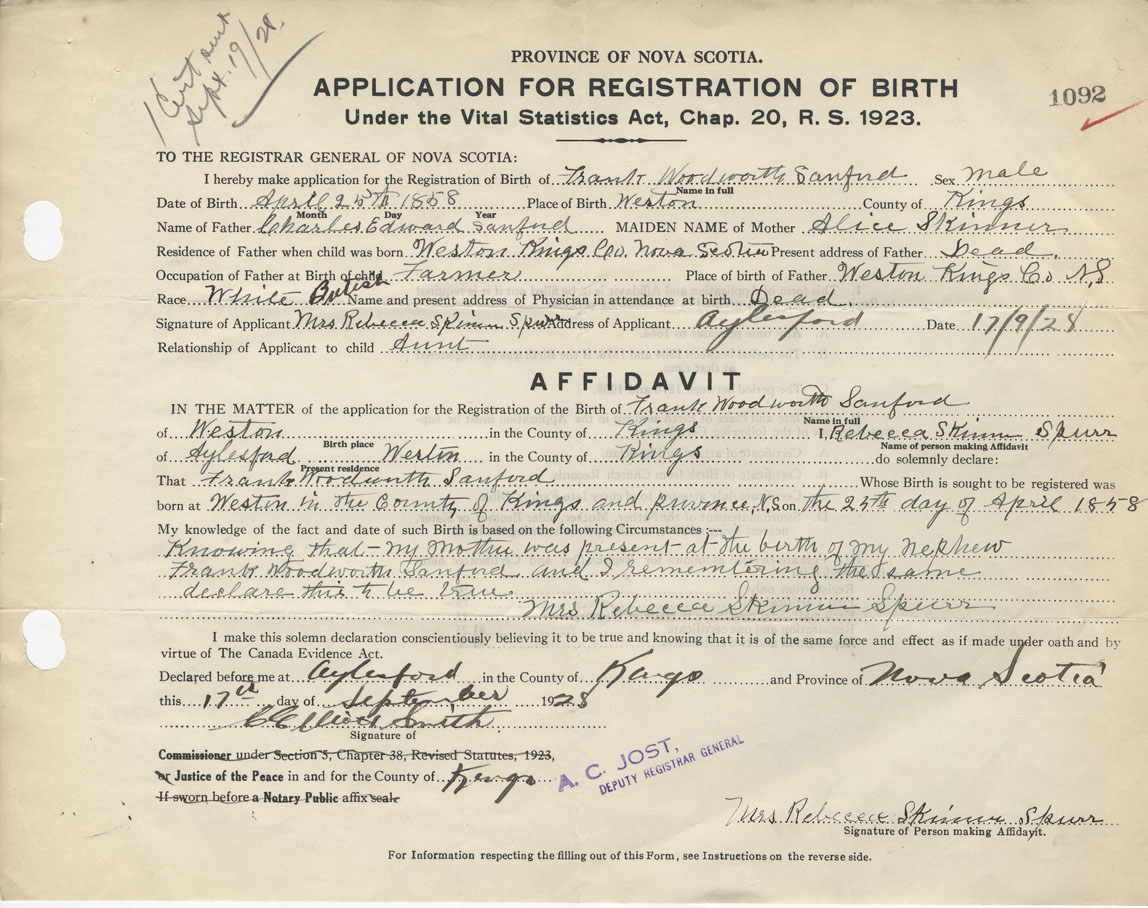 1 Cert sent
Sept. 19/28.
PROVINCE OF NOVA SCOTIA.
APPLICATION FOR REGISTRATION OF BIRTH
1092
Under the Vital Statistics Act, Chap. 20, R. S. 1923.
TO THE REGISTRAR GENERAL OF NOVA SCOTIA:
I hereby make application for the Registration of Birth of Frank Woodworth Sanford Sex Male
Name in full
Date of Birth April 25th 1858 Place of Birth Weston County of Kings
Month Day Year
Name of Father Charles Edward Sanford MAIDEN NAME of Mother Alice Skinner
Residence of Father when child was born Weston Kings Co. Nova Scotia Present address of Father Dead.
Occupation of Father at Birth of child Farmer Place of birth of Father Weston Kings Co N,S
Race White British Name and present address of Physician in attendance at birth Dead
Signature of Applicant Mrs Rebecca Skinner Spurr Address of Applicant Aylesford Date 17/9/28
Relationship of Applicant to child Aunt
AFFIDAVIT
IN THE MATTER of the application for the Registration of the Birth of Frank Woodworth Sanford
Name in full
of Weston in the County of Kings I, Rebecca Skinner Spurr
Birth place Name of person making Affidavit
of Aylesford Weston in the County of Kings do solemnly declare:
Present residence
That Frank Woodworth Sanford Whose Birth is sought to be registered was
born at Weston in the County of Kings and province, N.S on the 25th day of April 1858
My knowledge of the fact and date of such Birth is based on the following Circumstances :---
Knowing that - my Mother was present at the birth of my nephew
Frank Woodworth Sanford and I remembering the same
declare this to be true
Mrs Rebecca Skinner Spurr
I make this solemn declaration conscientiously believing it to be true and knowing that it is of the same force and effect as if made under oath and by
virtue of The Canada Evidence Act.
Declared before me at Aylesford in the County of Kings and Province of Nova Scotia
this 17th day of September 1928
Smith
Signature of
Commissioner under Section 5, Chapter 38, Revised Statutes, 1923,
or Justice of the Peace in and for the County of Kings
If sworn before a Notary Public affix seal
A. C. JOST,
DEPUTY REGISTRAR GENERAL
Mrs Rebecca Skinner Spurr
Signature of Person making Affidavit.
For Information respecting the filling out of this Form, see Instructions on the reverse side.